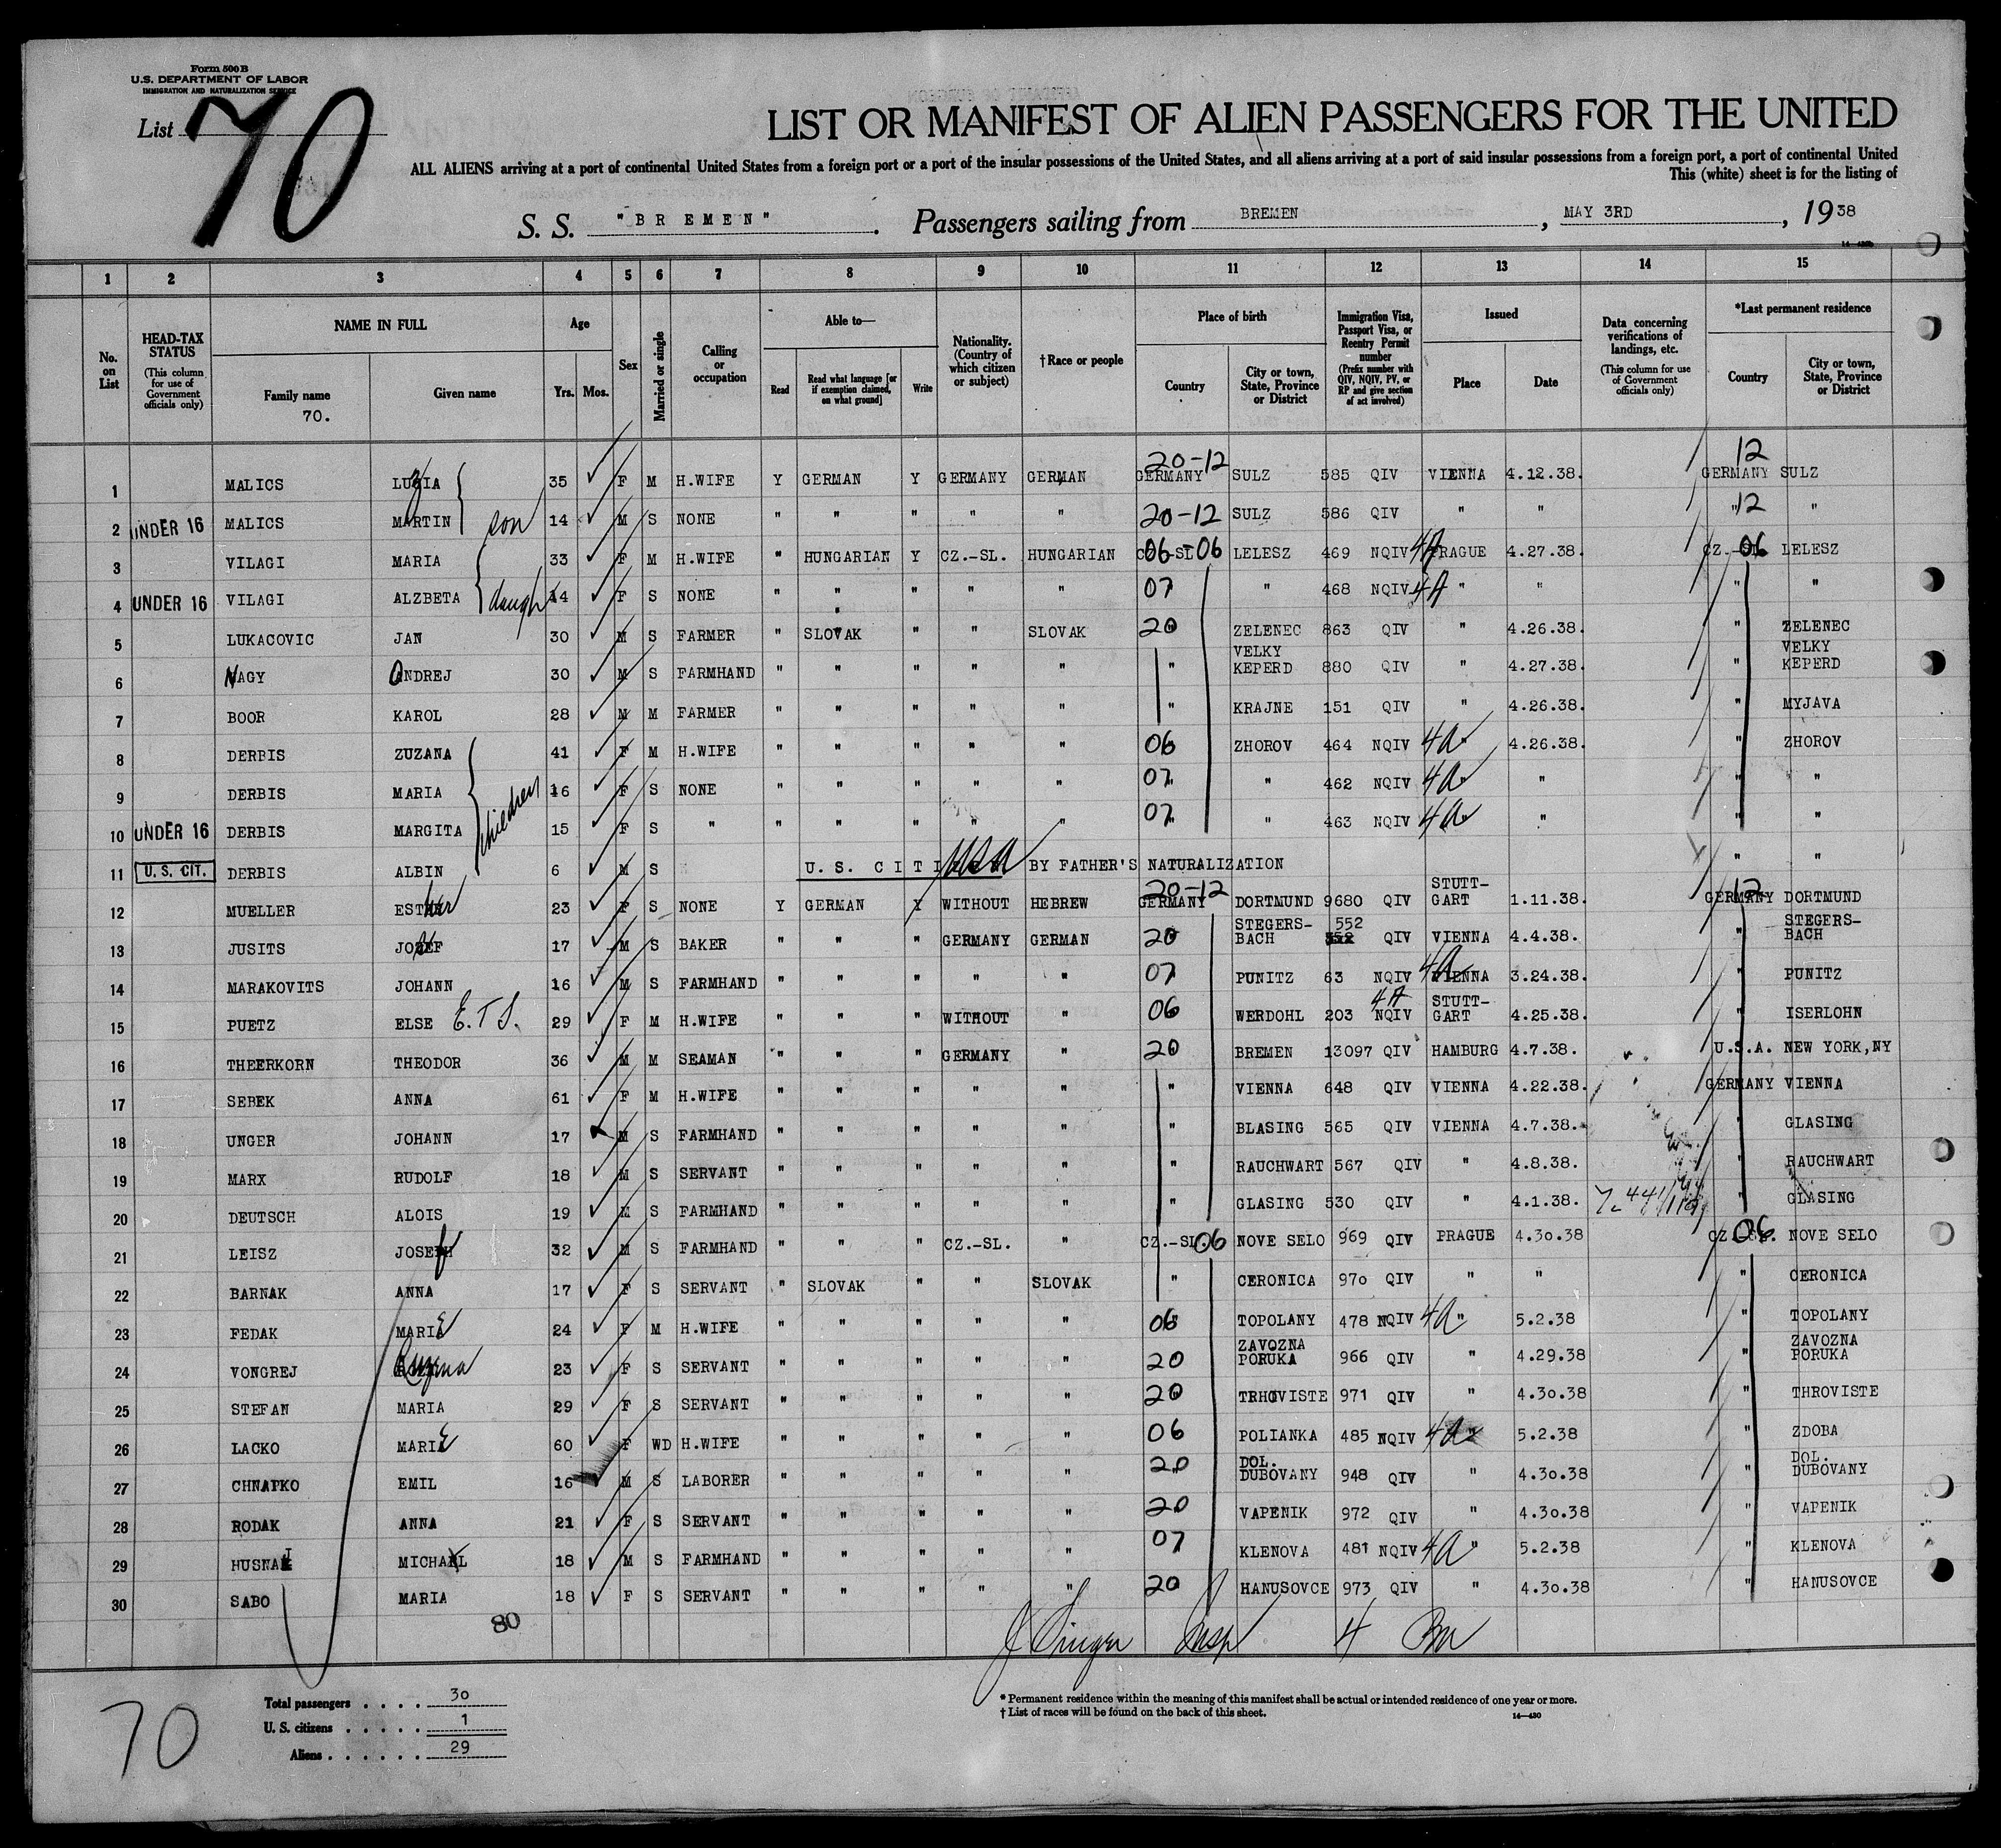 Form 500 B
U.S. DEPARTMENT OF LABOR
IMMIGRATION AND NATURALIZATION SERVICE
List 70
LIST OR MANIFEST OF ALIEN PASSENGERS FOR THE UNITED
ALL ALIENS arriving at a port of continental United States from a foreign port or a port of the insular possessions of the United States, and all aliens arriving at a port of said insular possessions from a foreign port, a port of continental United
This (white) sheet is for the listing of
S. S. "BREMEN". Passengers sailing from BREMEN, MAY 3RD, 1938
1 2 3 4 5 6 7 8 9 10 11 12 13 14 15
No. on List
HEAD-TAX STATUS
(This column for use of Government officials only)
NAME IN FULL
Family name
70.
Given name
Age
Yrs. Mos.
Sex
Married or single
Calling or occupation
Able to—
Read
Read what language [or if exemption claimed, on what ground]
Write
Nationality. (Country of which citizen or subject)
†Race or people
Place of birth
Country
City or town, State, Province or District
Immigration Visa, Passport Visa, or Reentry Permit number
(Prefix number with QIV, NQIV, PV, or RP and give section of act involved)
Issued
Place
Date
Data concerning verifications of landings, etc.
(This column for use of Government officials only)
*Last permanent residence
Country
City or town, State, Province or District
1 MALICS LUZIA 35 F M H.WIFE Y GERMAN Y GERMANY GERMAN GERMANY 20-12 SULZ 585 QIV VIENNA 4.12.38. GERMANY 12 SULZ
2 UNDER 16 MALICS MARTIN son 14 M S NONE " " " " " 20-12 SULZ 586 QIV " " " 12 "
3 VILAGI MARIA 33 F M H.WIFE " HUNGARIAN Y CZ.-SL. HUNGARIAN CZ.-SL. 06-06 LELESZ 469 NQIV 4A PRAGUE 4.27.38. CZ.-SL. 06 LELESZ
4 UNDER 16 VILAGI ALZBETA daugh 14 F S NONE " " " " " 07 " 468 NQIV 4A " " " "
5 LUKACOVIC JAN 30 M S FARMER " SLOVAK " " SLOVAK 20 ZELENEC 863 QIV " 4.26.38. " ZELENEC
6 NAGY ONDREJ 30 M S FARMHAND " " " " " " VELKY KEPERD 880 QIV " 4.27.38. " VELKY KEPERD
7 BOOR KAROL 28 M M FARMER " " " " " " KRAJNE 151 QIV " 4.26.38. " MYJAVA
8 DERBIS ZUZANA 41 F M H.WIFE " " " " " 06 ZHOROV 464 NQIV 4A " 4.26.38. " ZHOROV
9 DERBIS MARIA children 16 F S NONE " " " " " 07 " 462 NQIV 4A " " " "
10 UNDER 16 DERBIS MARGITA 15 F S " " " " " " 07 " 463 NQIV 4A " " " "
11 U. S. CIT. DERBIS ALBIN 6 M S U.S. CITIZEN USA BY FATHER'S NATURALIZATION " "
12 MUELLER ESTHER 23 F S NONE Y GERMAN Y WITHOUT HEBREW GERMANY 20-12 DORTMUND 9680 QIV STUTT-GART 1.11.38. GERMANY 12 DORTMUND
13 JUSITS JOSEF 17 M S BAKER " " " GERMANY GERMAN 20 STEGERS-BACH 552 QIV VIENNA 4.4.38. " STEGERS-BACH
14 MARAKOVITS JOHANN 16 M S FARMHAND " " " " " 07 PUNITZ 63 NQIV 4A VIENNA 3.24.38. " PUNITZ
15 PUETZ ELSE E.T.S. 29 F M H.WIFE " " " WITHOUT " 06 WERDOHL 203 NQIV 4A STUTT-GART 4.25.38. " ISERLOHN
16 THEERKORN THEODOR 36 M M SEAMAN " " " GERMANY " 20 BREMEN 13097 QIV HAMBURG 4.7.38. U.S.A. NEW YORK,NY
17 SEBEK ANNA 61 F M H.WIFE " " " " " " VIENNA 648 QIV VIENNA 4.22.38. GERMANY VIENNA
18 UNGER JOHANN 17 M S FARMHAND " " " " " " BLASING 565 QIV VIENNA 4.7.38. " GLASING
19 MARX RUDOLF 18 M S SERVANT " " " " " " RAUCHWART 567 QIV " 4.8.38. " RAUCHWART
20 DEUTSCH ALOIS 19 M S FARMHAND " " " " " " GLASING 530 QIV " 4.1.38. " GLASING
21 LEISZ JOSEF 32 M S FARMHAND " " " CZ.-SL. " CZ.-SL. 06 NOVE SELO 969 QIV PRAGUE 4.30.38 CZ.-SL. 06 NOVE SELO
22 BARNAK ANNA 17 F S SERVANT " SLOVAK " " SLOVAK " CERONICA 970 QIV " " " CERONICA
23 FEDAK MARIE 24 F M H.WIFE " " " " " 06 TOPOLANY 478 NQIV 4A " 5.2.38 " TOPOLANY
24 VONGREJ Ruzena 23 F S SERVANT " " " " " 20 ZAVOZNA PORUKA 966 QIV " 4.29.38 " ZAVOZNA PORUKA
25 STEFAN MARIA 29 F S SERVANT " " " " " 20 TRHOVISTE 971 QIV " 4.30.38 " THROVISTE
26 LACKO MARIE 60 F WD H.WIFE " " " " " 06 POLIANKA 485 NQIV 4A " 5.2.38 " ZDOBA
27 CHNAPKO EMIL 16 M S LABORER " " " " " 20 DOL. DUBOVANY 948 QIV " 4.30.38 " DOL. DUBOVANY
28 RODAK ANNA 21 F S SERVANT " " " " " 20 VAPENIK 972 QIV " 4.30.38 " VAPENIK
29 HUSNAI MICHAL 18 M S FARMHAND " " " " " 07 KLENOVA 481 NQIV 4A " 5.2.38 " KLENOVA
30 SABO MARIA 18 F S SERVANT " " " " " 20 HANUSOVCE 973 QIV " 4.30.38 " HANUSOVCE
80
J Singer Insp 4
70
Total passengers . . . . 30
U. S. citizens . . . . . 1
Aliens . . . . . . 29
* Permanent residence within the meaning of this manifest shall be actual or intended residence of one year or more.
† List of races will be found on the back of this sheet.
14—430